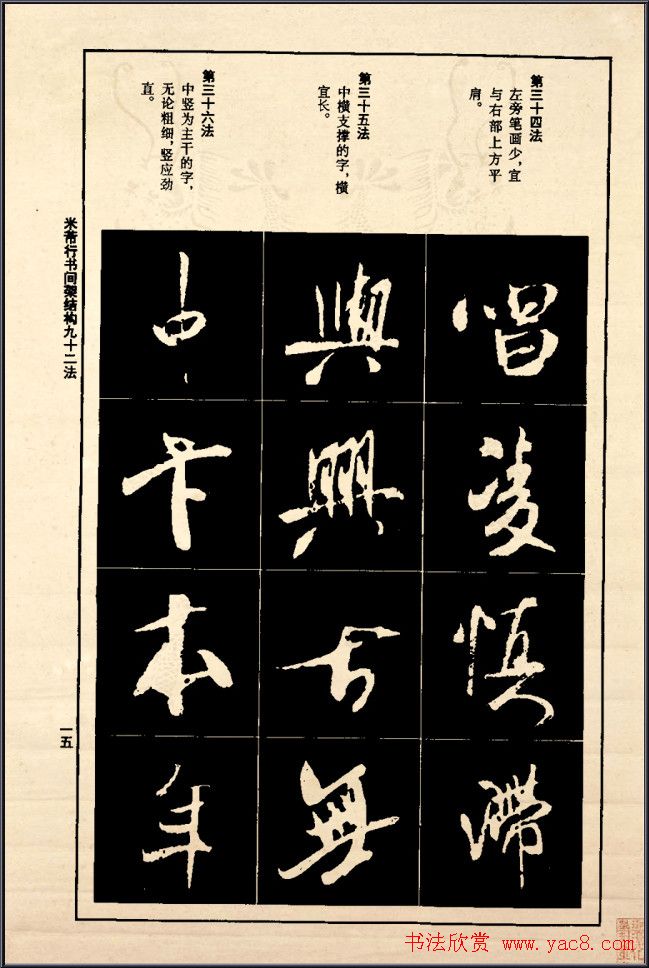 第三十四法
左旁笔画少，宜
与右部上方平
肩。
第三十五法
中横支撑的字，横
宜长。
第三十六法
中竖为主干的字，
无论粗细，竖应劲
直。
唱凌慎滯
與興無
中卞本年
米芾行书间架结构九十二法
一五
书法欣赏 www.yac8.com